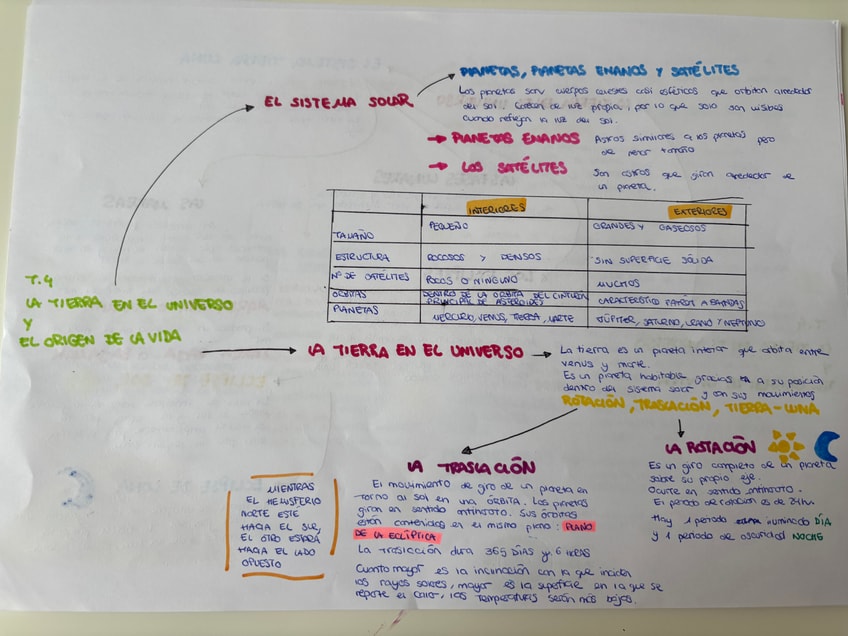 PLANETAS, PLANETAS ENANOS Y SATÉLITES
EL SISTEMA SOLAR
Los planetas son cuerpos celestes casi esféricos que orbitan alrededor
del sol. Carecen de luz propia, por lo que solo son visibles
cuando reflejan la luz del sol.
PLANETAS ENANOS Astros similares a los planetas pero
de menor tamaño
LOS SATÉLITES Son astros que giran alrededor de
un planeta.
INTERIORES EXTERIORES
TAMAÑO PEQUEÑO GRANDES Y GASEOSOS
ESTRUCTURA ROCOSOS Y DENSOS SIN SUPERFICIE SÓLIDA
Nº DE SATÉLITES POCOS O NINGUNO MUCHOS
ORBITAS DENTRO DE LA ORBITA DEL CINTURÓN
PRINCIPAL DE ASTEROIDES CARACTERÍSTICO
PLANETAS MERCURIO, VENUS, TIERRA, MARTE JÚPITER, SATURNO, URANO Y NEPTUNO
T.4
LA TIERRA EN EL UNIVERSO
Y
EL ORIGEN DE LA VIDA
LA TIERRA EN EL UNIVERSO
La tierra es un planeta interior que orbita entre
venus y marte.
Es un planeta habitable gracias a su posición
dentro del sistema solar y con sus movimientos
ROTACIÓN, TRASLACIÓN, TIERRA-LUNA
LA TRASLACIÓN
El movimiento de giro de un planeta en
torno al sol en una ÓRBITA. Los planetas
giran en sentido antihorario. Sus órbitas
están contenidas en el mismo plano: PLANO
DE LA ECLÍPTICA
La traslación dura 365 DÍAS y 6 HORAS
Cuanto mayor es la inclinación con la que inciden
los rayos solares, mayor es la superficie en la que se
reparte el calor, las temperaturas serán más bajas.
MIENTRAS
EL HEMISFERIO
NORTE ESTE
HACIA EL SUR,
EL OTRO ESTARÁ
HACIA EL LADO
OPUESTO
LA ROTACIÓN
Es un giro completo de un planeta
sobre su propio eje.
Ocurre en sentido antihorario.
El periodo de rotación es de 24h.
Hay 1 periodo iluminado DÍA
y 1 periodo de oscuridad NOCHE